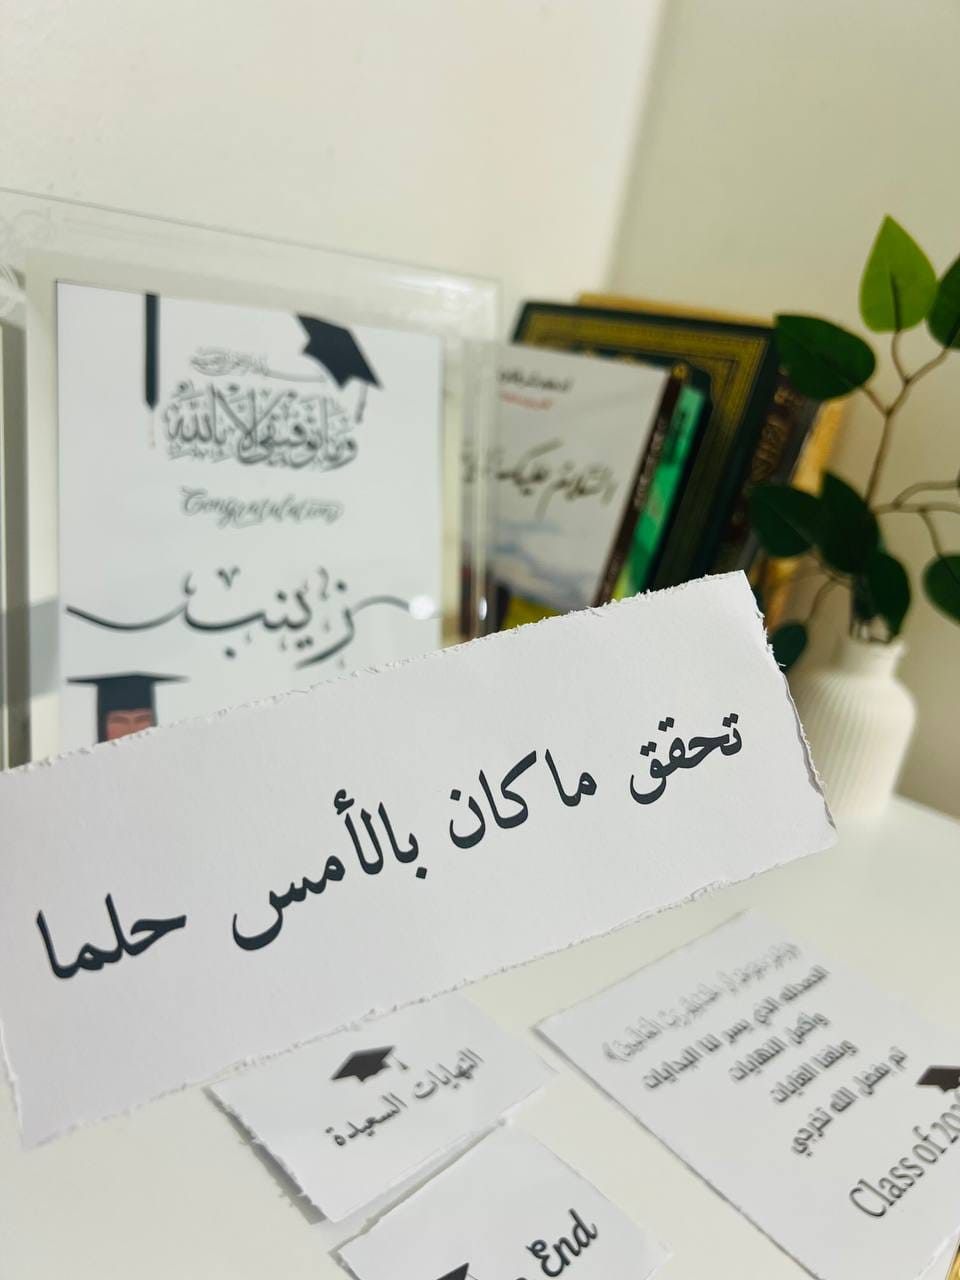 وما توفيقي إلا بالله
Congratulations
زينب
السلام عليك
تحقق ما كان بالأمس حلما
النهايات السعيدة
End
الحمدلله الذي يسر لنا البدايات
وأكمل النهايات
وبلغنا الغايات
تم بفضل الله تخرجي
Class of